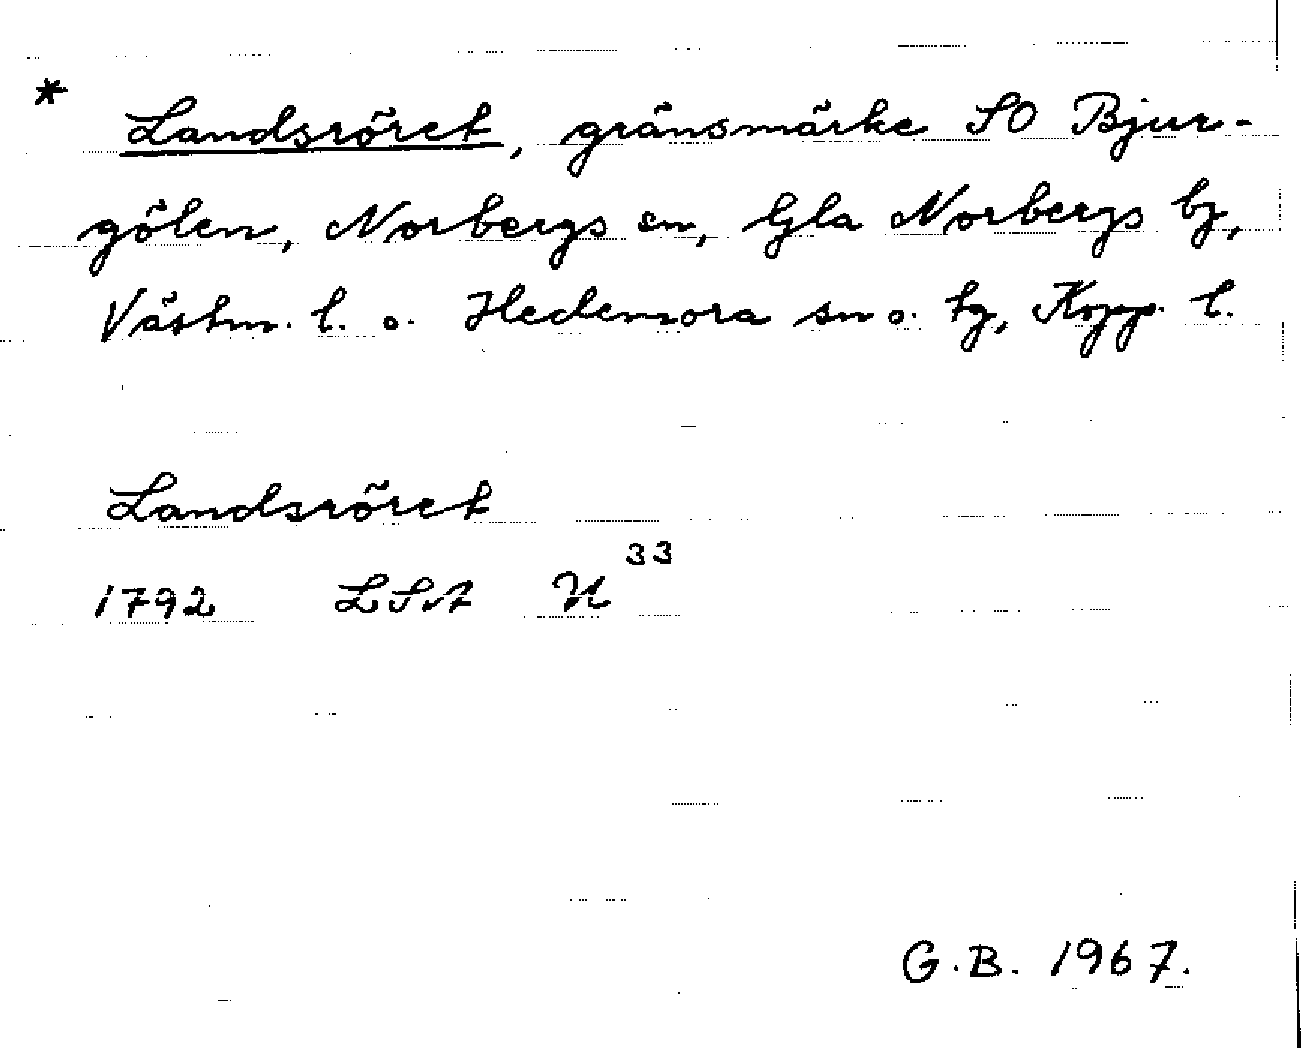 * Landsröret, gränsmärke SO Bjur-
gölen, Norbergs sn, Gla Norbergs bg,
Västm. l. o. Hedemora sn o. tg, Kopp. l.
Landsröret
1792 LSA U 33
G.B. 1967.